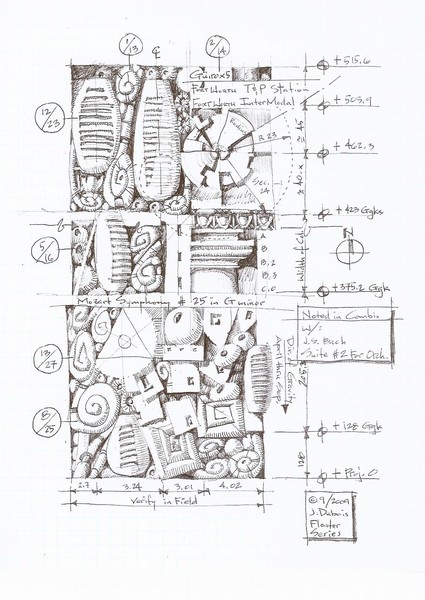 1/13
2/14
℄
+515.6
Guiro x5
Fort Worth T&P Station
Fort Worth InterModal
+503.9
12/23
R 23
+462.3
Sec. 24
+423 Ggks
5/16
A
B
B.2
B.3
C.0
Width of Col.
N
+375.2 Ggk
Mozart Symphony # 25 in G minor
Noted in Combin
W/:
J.S. Bach
Suite #2 For Orch.
13/27
8/25
+128 Ggk
128
+Proj. 0
2.7
3.24
3.01
4.02
Verify in Field
© 9/2009
J. Dubois
Floater
Series